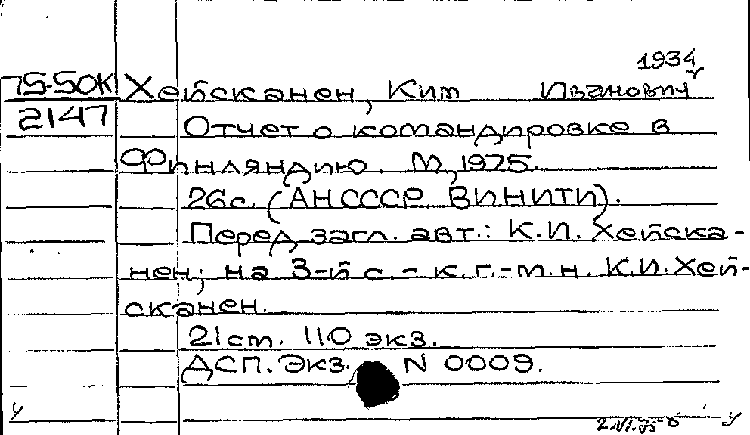 1934
75-50К Хейсканен, Ким Иванович
2147 Отчет о командировке в
Финляндию. М, 1975.
26с. (АН СССР. ВИНИТИ).
Перед загл. авт.: К.И. Хейска-
нен; на 3-й с. - к.г.-м.н. К.И. Хей-
сканен.
21см. 110 экз.
ДСП. Экз. N 0009.